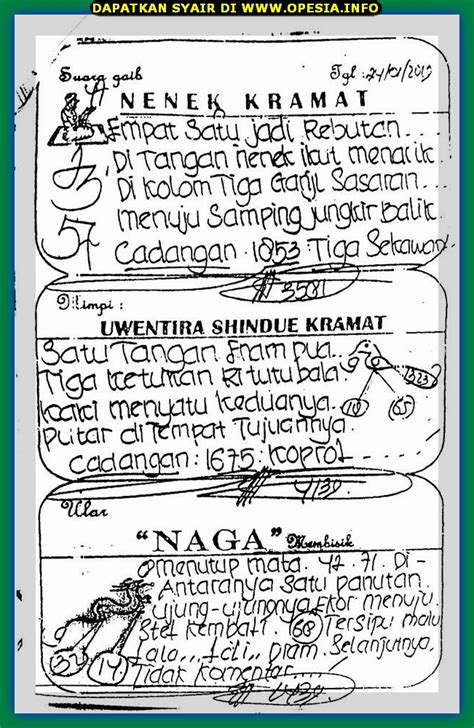 DAPATKAN SYAIR DI WWW.OPESIA.INFO
Suara gaib Tgl : 24/01/2019
NENEK KRAMAT
Empat Satu jadi Rebutan...
Di Tangan nenek ikut menarik
Di kolom Tiga Ganjil Sasaran...
menuju Samping jungkir Balik.
Cadangan : 1853 : Tiga Sekawan
3
57
3581
Mimpi :
UWENTIRA SHINDUE KRAMAT
Satu Tangan Enam pua..
Tiga ketuman Ri tutu bala.
kaki menyatu keduanya.
Putar di Tempat Tujuannya.
Cadangan : 1675 : Koprol
10 65
4139
Ular
"NAGA" Membisik
menutup mata. 42. 71. Di-
Antaranya Satu panutan.
ujung-ujungnya Ekor menuju.
Stel kembali. 68 Tersipu malu
lalo,,, lali,, Diam. Selanjutnya.
Tidak komentar....!
32 14